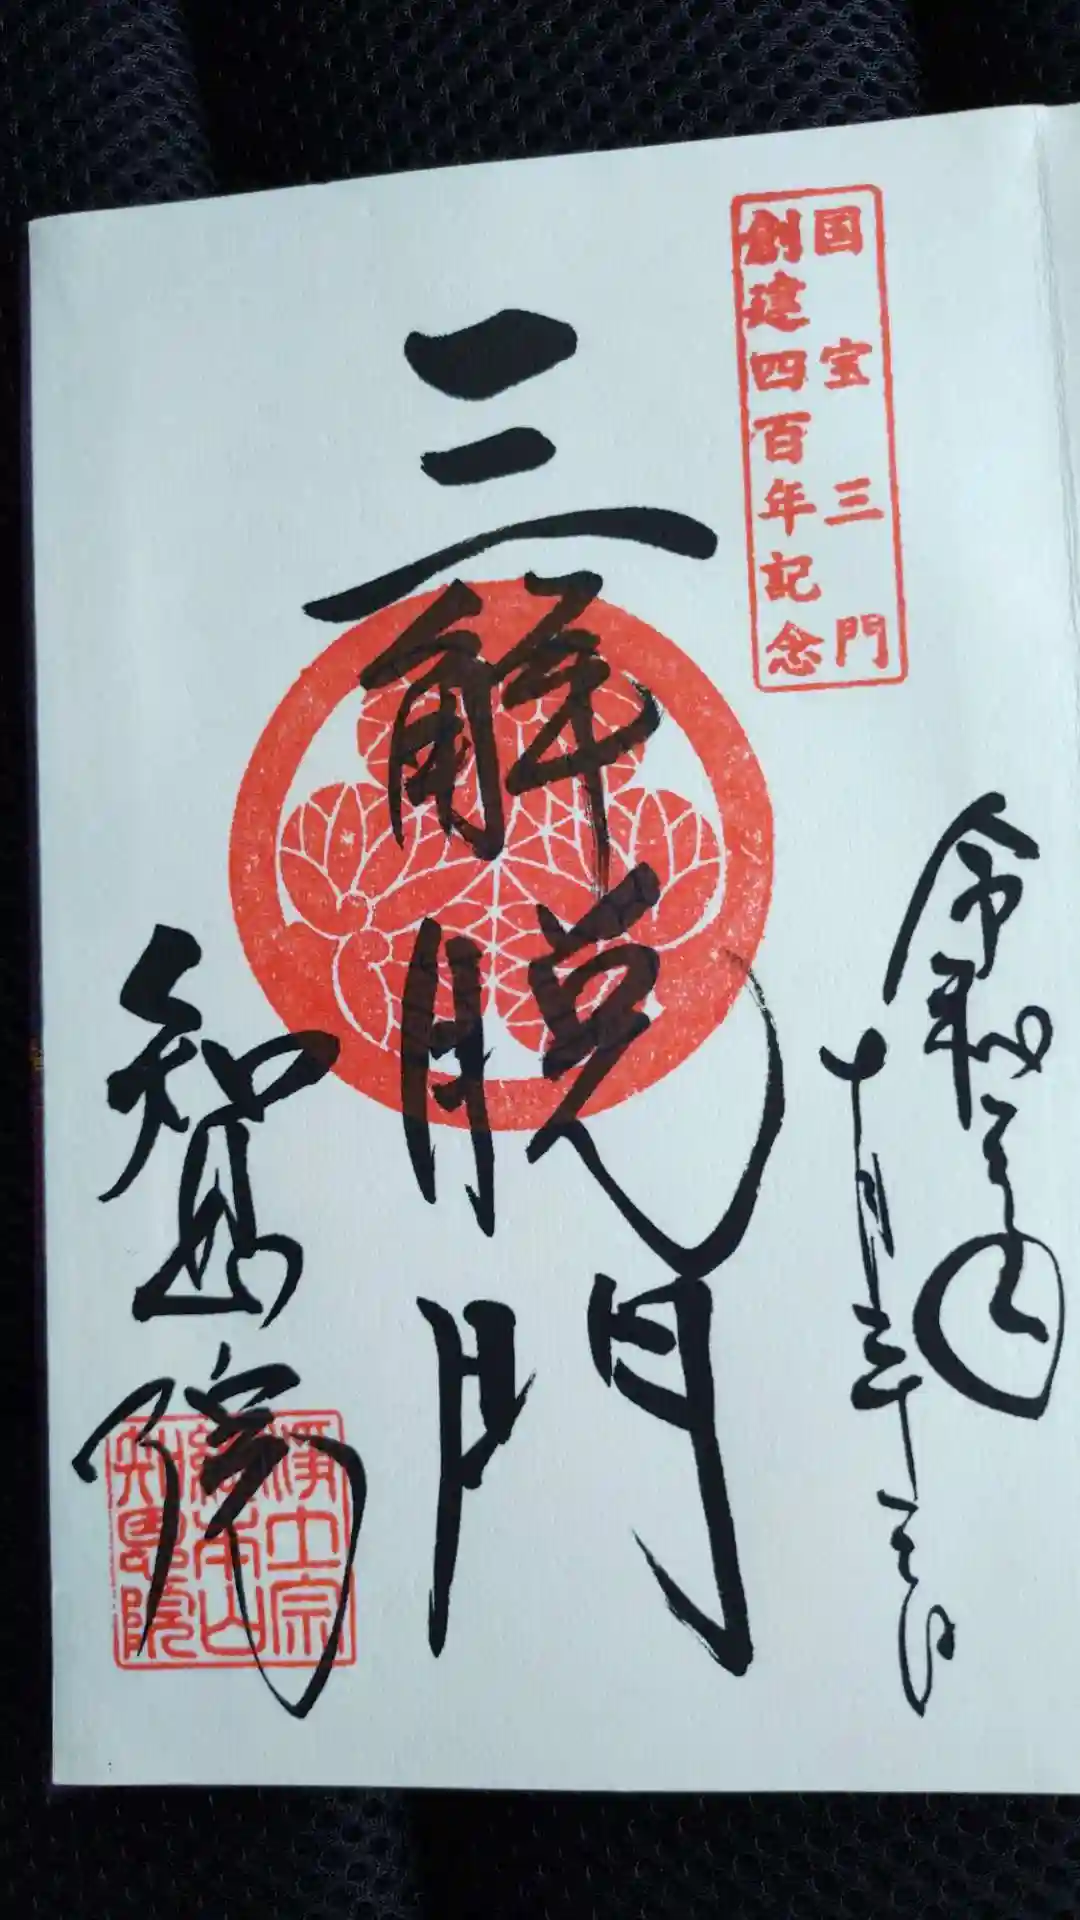 国宝三門
創建四百年記念
令和三年
十月三十一日
三解脱門
知恩院
浄土宗
総本山
知恩院